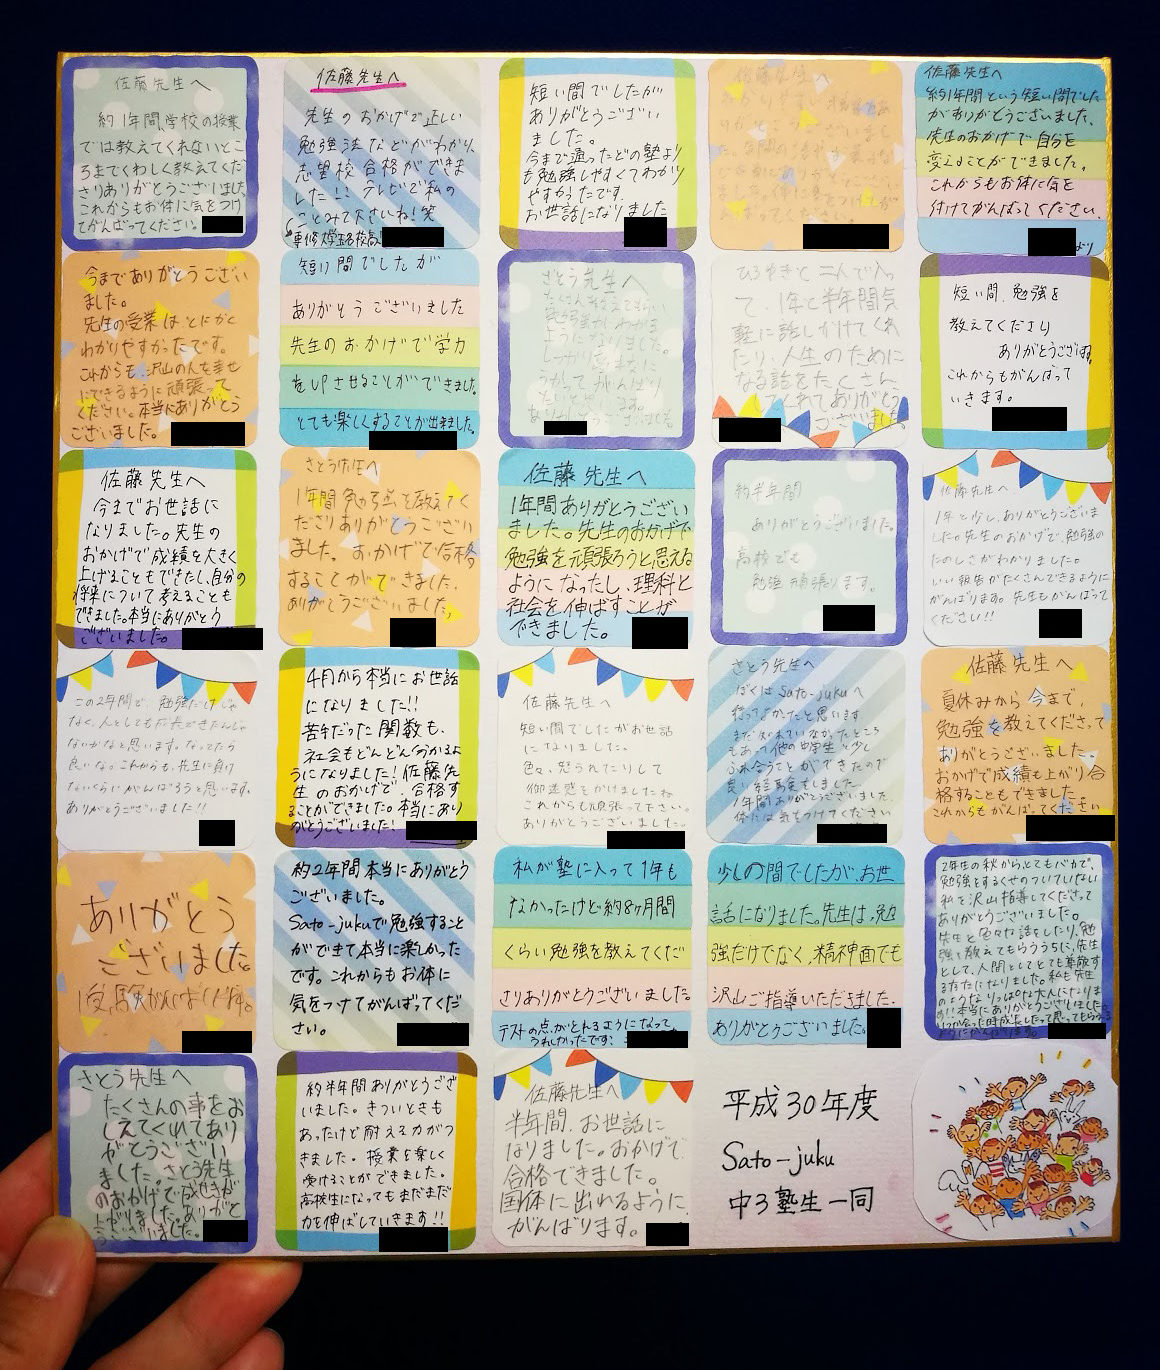 佐藤先生へ
約1年間、学校の授業
では教えてくれないとこ
ろまでくわしく教えてくだ
さりありがとうございました
これからもお体に気をつけ
てがんばってください。
佐藤先生へ
先生のおかげで正しい
勉強法などがわかり、
志望校合格ができま
した!! テレビで私の
ことみて下さいね!笑
短い間でしたが
ありがとうござい
ました。
今まで通ったどの塾より
も勉強しやすくてわかり
やすかったです。
お世話になりました
佐藤先生へ
佐藤先生へ
約1年間という短い間でした
がありがとうございました。
先生のおかげで自分を
変えることができました。
これからもお体に気を
付けてがんばってください。
より
今までありがとうござい
ました。
先生の授業は、とにかく
わかりやすかったです。
これからも、沢山の人を幸せ
にできるように頑張って
ください。本当にありがとう
ございました。
短い間でしたが
ありがとうございました
先生のおかげで学力
をUPさせることができました。
とても楽しくすることが出来ました。
さとう先生へ
ひろやきと二人で入っ
て、1年と半年間気
軽に話しかけてくれ
たり、人生のために
なる話をたくさん
してくれてありがとう
ございました。
短い間、勉強を
教えてくださり
ありがとうございます。
これからもがんばって
いきます。
佐藤先生へ
今までお世話に
なりました。先生の
おかげで成績を大きく
上げることもできたし、自分の
将来について考えることも
できました。本当にありがとう
ございました。
さとう先生へ
1年間 教えてく
ださりありがとうござい
ました。おかげで合格
することができました。
ありがとうございました。
佐藤先生へ
1年間ありがとうござい
ました。先生のおかげで
勉強を頑張ろうと思える
ようになったし、理科と
社会を伸ばすことが
できました。
約半年間
ありがとうございました。
高校でも
勉強頑張ります。
佐藤先生へ
1年と少し、ありがとうございま
した。先生のおかげで、勉強の
たのしさがわかりました。
いい報告がたくさんできるように
がんばります。先生もがんばって
ください!!
この2年間で、勉強だけじゃ
なく、人としても成長できたんじゃ
ないかなと思います。なってたら
良いな。これからも、先生に負け
ないくらいがんばろうと思います。
ありがとうございました!!
4月から本当にお世話
になりました!!
苦手だった関数も、
社会もどんどん分かるよ
うになりました!佐藤先
生のおかげで、合格す
ることができました。本当にあり
がとうございました!
佐藤先生へ
短い間でしたがお世話
になりました。
色々、怒られたりして
御迷惑をかけましたね
これからも頑張って下さい。
ありがとうございました。
さとう先生へ
ぼくはSato-jukuへ
行ってよかったと思います
まだ知れていなかったところ
もあって他の中学生と少し
ふれ合うことができたので
良い経験をしました。
1年間ありがとうございました。
体には気をつけてください
佐藤先生へ
夏休みから今まで、
勉強を教えてくださって
ありがとうございました。
おかげで成績も上がり合
格することもできました。
これからもがんばってください
ありがとう
ございました。
受験がんばります。
約2年間本当にありがとう
ございました。
Sato-jukuで勉強すること
ができて本当に楽しかった
です。これからもお体に
気をつけてがんばってくだ
さい。
私が塾に入って1年も
なかったけど約8ヶ月間
くらい勉強を教えてくだ
さりありがとうございました。
テストの点がとれるようになって
うれしかったです!
少しの間でしたが、お世
話になりました。先生は、勉
強だけでなく、精神面でも
沢山ご指導いただきました。
ありがとうございました。
2年生の秋からとてもバカで、
勉強をするくせのついていない
私を沢山指導してくださって
ありがとうございました。
先生と色々な話をしたり、勉
強を教えてもらううちに、先生
として、人間としてとても尊敬す
る方になりました。私も先生
のようなりっぱな大人になりま
す!!本当にありがとうございました。
さとう先生へ
たくさんの事をお
しえてくれてあり
がとうござい
ました。さとう先生
のおかげで成せきが
上がりました。ありがと
うございました。
約半年間ありがとうござ
いました。きついときも
あったけど耐える力がつ
きました。授業を楽しく
受けることができました。
高校生になってもまだまだ
力を伸ばしていきます!!
佐藤先生へ
半年間、お世話に
なりました。おかげで、
合格できました。
国体に出れるように、
がんばります。
平成30年度
Sato-juku
中3塾生一同